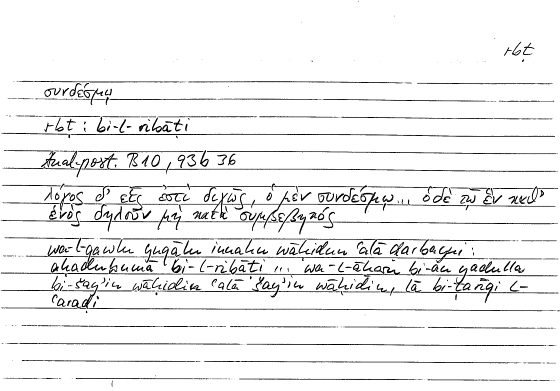 rbṭ
συνδέσμῳ
rbṭ : bi-l-ribāṭi
Anal. post. B 10, 93b 36
λόγος δ' εἷς ἐστὶ διχῶς, ὁ μὲν συνδέσμῳ... ὁ δὲ τῷ ἓν καθ'
ἑνὸς δηλοῦν μὴ κατὰ συμβεβηκός
wa-l-qawlu yuqālu innahu wāḥidun ʿalā ḍarbayni :
aḥaduhumā bi-l-ribāṭi ... wa-l-āḫaru bi-an yadulla
bi-šayʾin wāḥidin ʿalā šayʾin wāḥidin, lā bi-ṭarīqi l-
ʿaraḍi